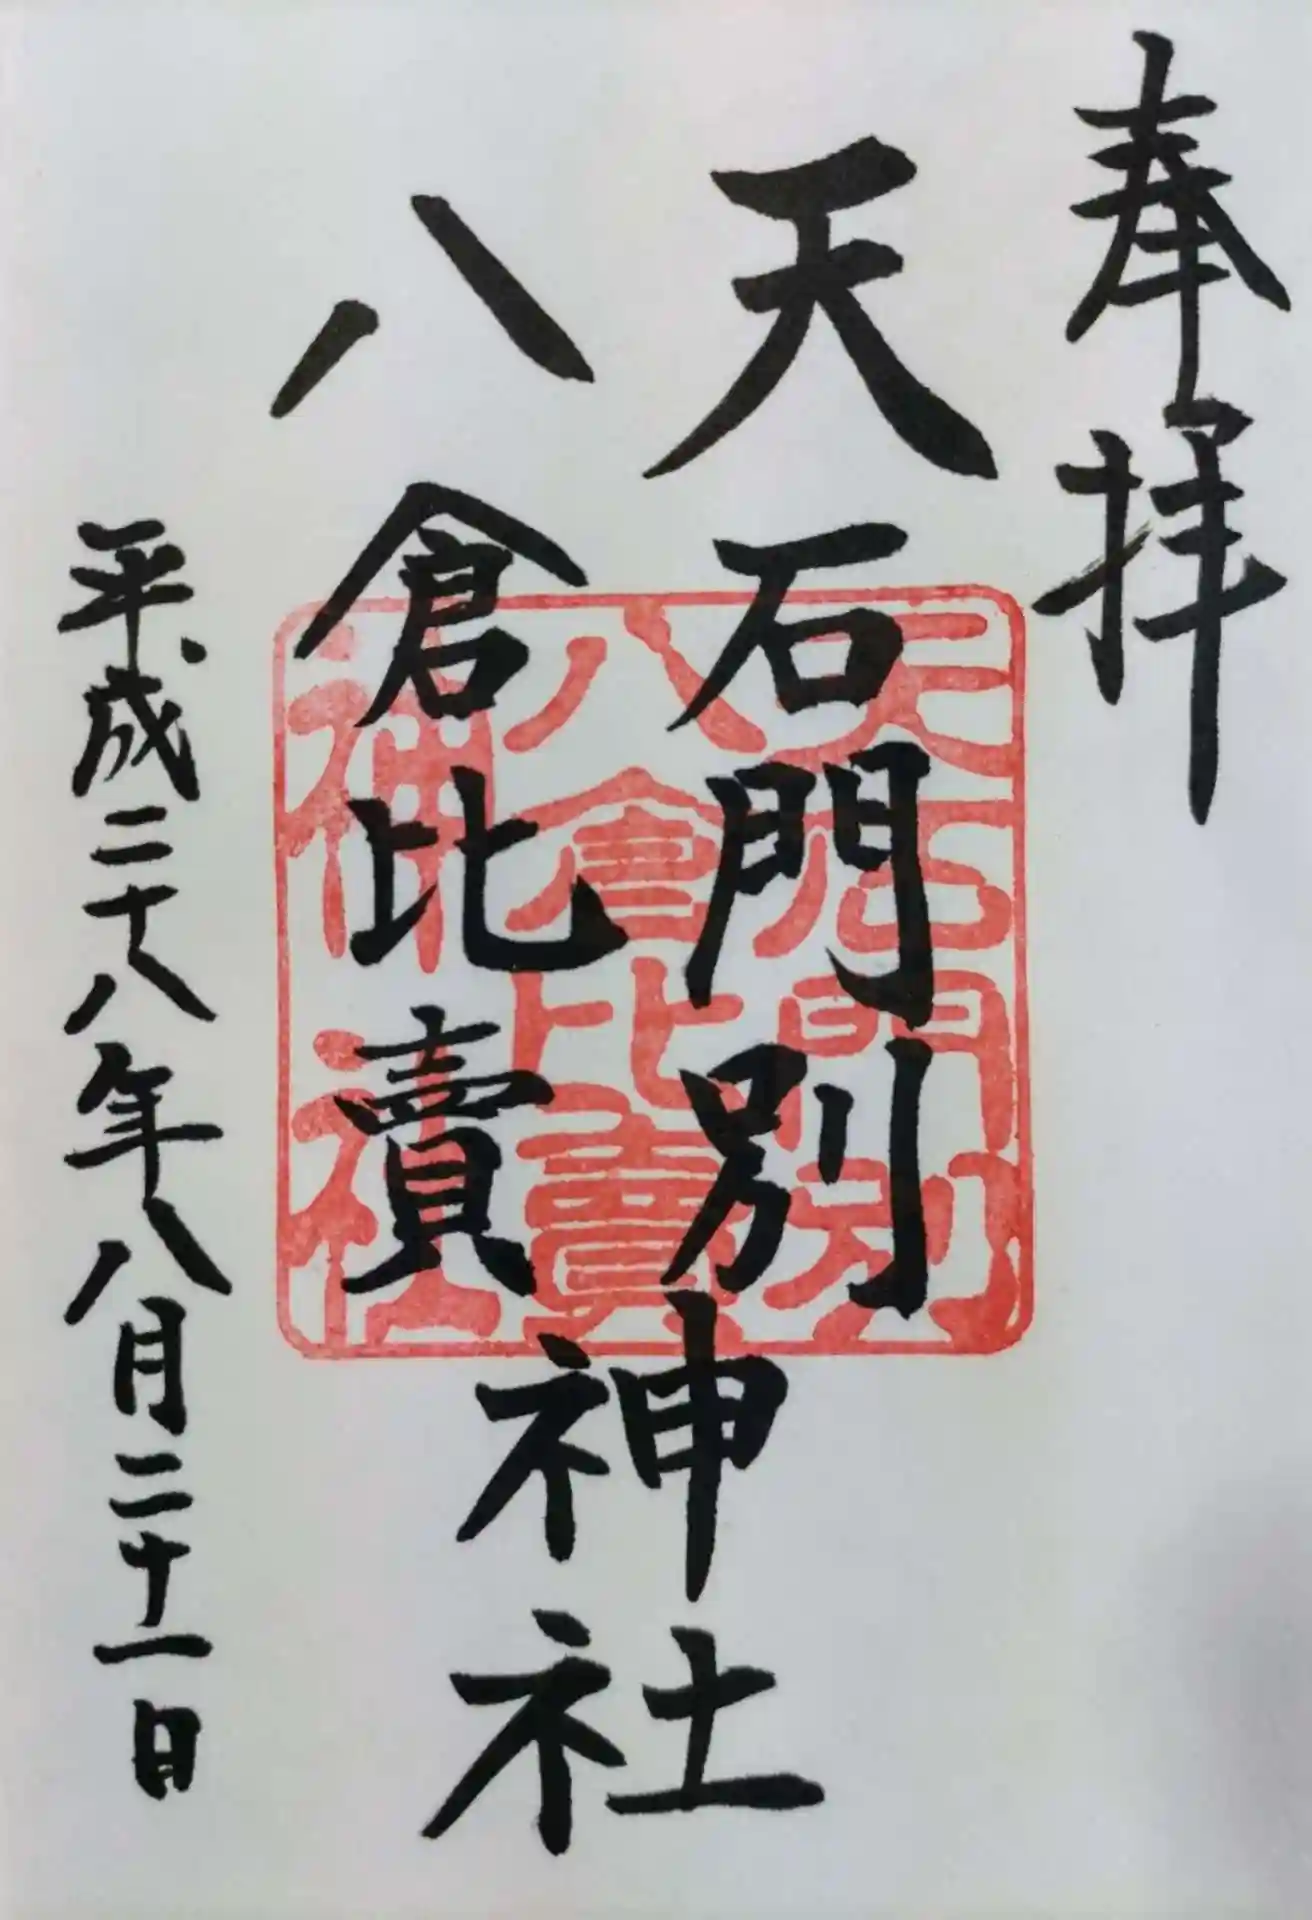 奉拝
天石門別
八倉比賣
神社
平成二十八年八月二十一日
天石門別
八倉比賣
神社